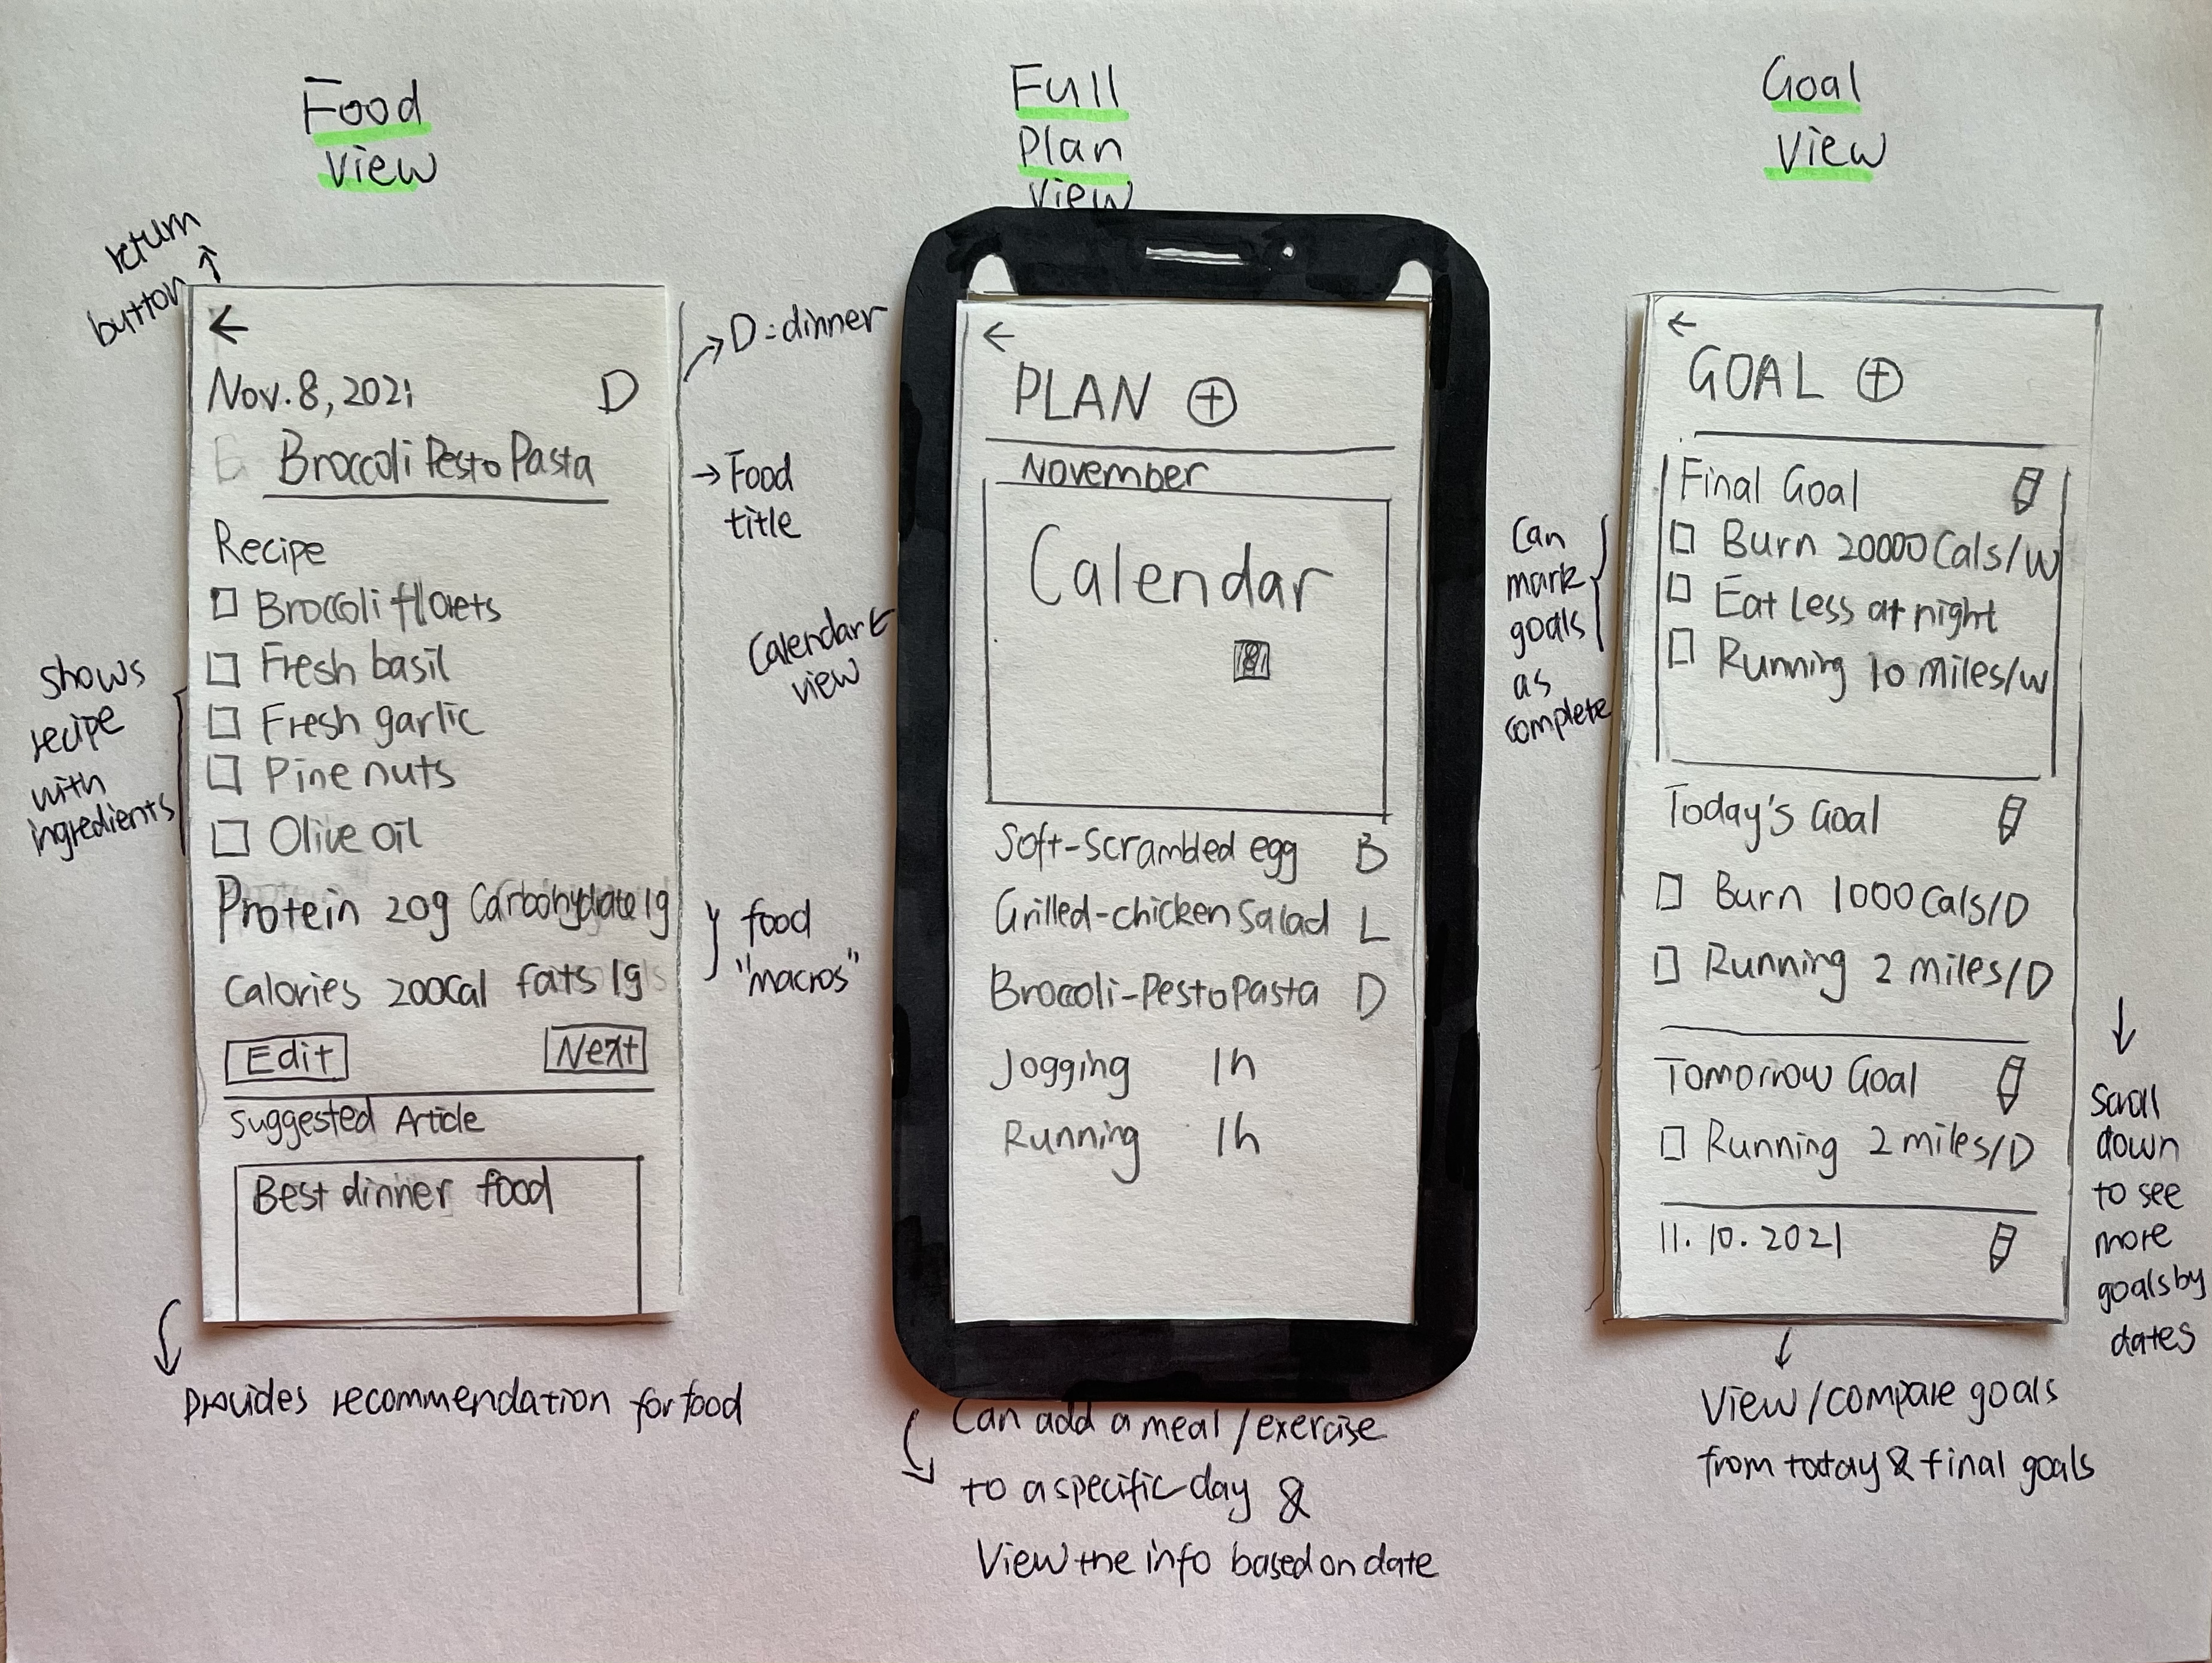 Food
View
return
button
←
Nov. 8, 2021 D
Broccoli Pesto Pasta
Recipe
Broccoli florets
Fresh basil
Fresh garlic
Pine nuts
Olive oil
Protein 20g Carbohydrate 1g
Calories 200Cal fats 1g
Edit Next
Suggested Article
Best dinner food
shows
recipe
with
ingredients
Provides recommendation for food
→ D = dinner
→ Food
title
Calendar ←
view
food
"macros"
Full
Plan
View
←
PLAN +
November
Calendar
8
Soft-scrambled egg B
Grilled-chicken Salad L
Broccoli-Pesto Pasta D
Jogging 1h
Running 1h
Can add a meal / exercise
to a specific day &
View the info based on date
Goal
View
←
GOAL +
Final Goal
Burn 20000 Cals/W
Eat less at night
Running 10 miles/W
Today's Goal
Burn 1000 Cals/D
Running 2 miles/D
Tomorrow Goal
Running 2 miles/D
11. 10. 2021
Can
mark
goals
as
complete
Scroll
down
to see
more
goals by
dates
View / compare goals
from today & final goals